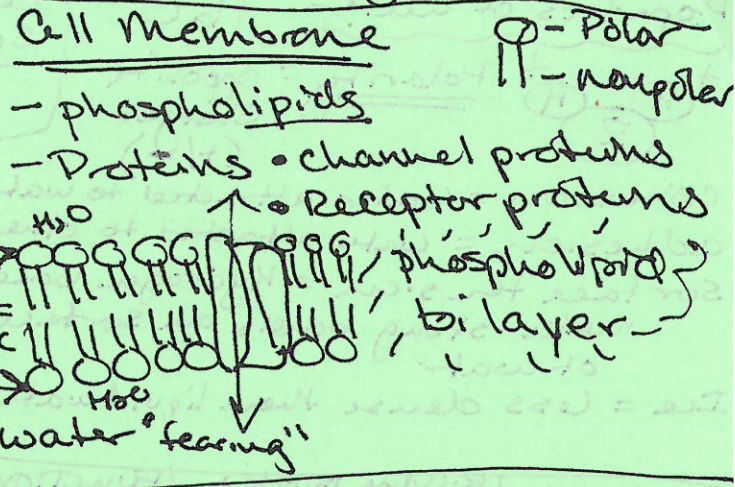 Cell Membrane
- Polar
- nonpolar
- phospholipids
- Proteins • channel proteins
• Receptor proteins
H2O
phospholipid
bilayer
H2O
water "fearing"